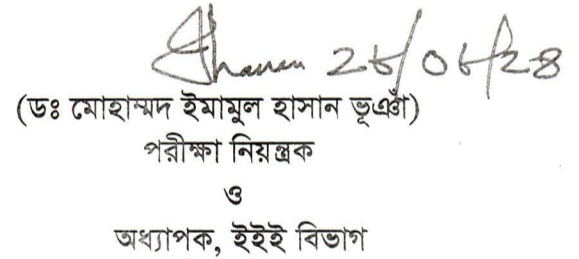 ২৮/০৮/২৪
(ডঃ মোহাম্মদ ইমামুল হাসান ভূঞাঁ)
পরীক্ষা নিয়ন্ত্রক
ও
অধ্যাপক, ইইই বিভাগ